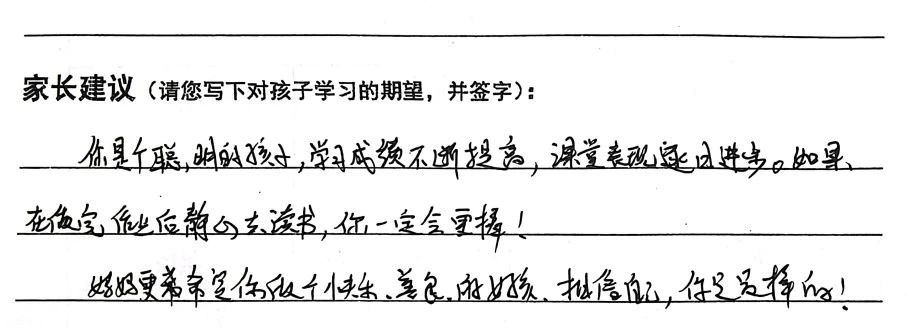 家长建议（请您写下对孩子学习的期望，并签字）：
你是个聪明的孩子，学习成绩不断提高，课堂表现逐日进步。如果
在做完作业后静心去读书，你一定会更棒！
妈妈更希望你做个快乐、善良的好孩、相信自己，你是最棒的！